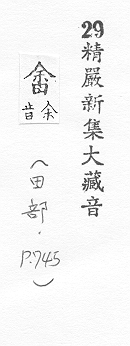 29精嚴新集大藏音
畬
余音
(田部.P.745)